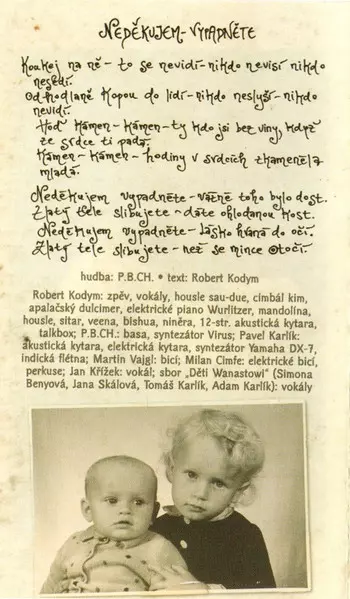 NEDĚKUJEM - VYPADNĚTE
Koukoj na ně - to se nevidí - nikdo nevisí nikdo
nesedí.
Odhodlaně kopou do lidí - nikdo neslyší - nikdo
nevidí.
Hoď kámen - kámen - ty kdo jsi bez viny, když
ze srdce ti padá.
Kámen - kámen - hodiny v srdcích zkamenělá
mladá.
Neděkujem vypadněte - vážně toho bylo dost.
Zlatý tele slibujete - dáte ohlodanou kost.
Neděkujem vypadněte - lásko hraná do očí.
Zlatý tele slibujete - než se mince otočí.
hudba: P.B.CH. • text: Robert Kodym
Robert Kodym: zpěv, vokály, housle sau-due, cimbál kim,
apalačský dulcimer, elektrické piano Wurlitzer, mandolína,
housle, sitar, veena, bishua, niněra, 12-str. akustická kytara,
talkbox; P.B.CH.: basa, syntezátor Virus; Pavel Karlík:
akustická kytara, elektrická kytara, syntezátor Yamaha DX-7,
indická flétna; Martin Vajgl: bicí; Milan Cimfe: elektrické bicí,
perkuse; Jan Křížek: vokál; sbor „Děti Wanastowi" (Simona
Benyová, Jana Skálová, Tomáš Karlík, Adam Karlík): vokály